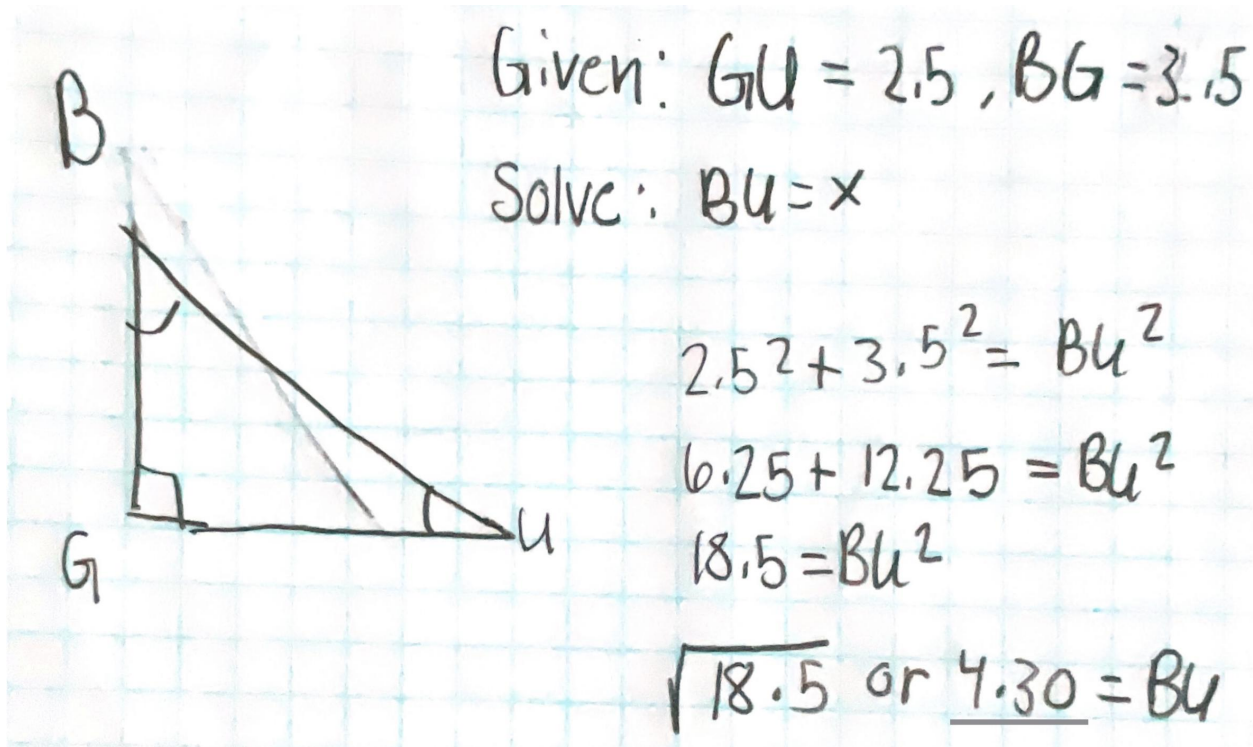 Given: GU = 2.5, BG = 3.5
B
Solve: BU = x
2.5² + 3.5² = BU²
6.25 + 12.25 = BU²
G U
18.5 = BU²
√18.5 or 4.30 = BU